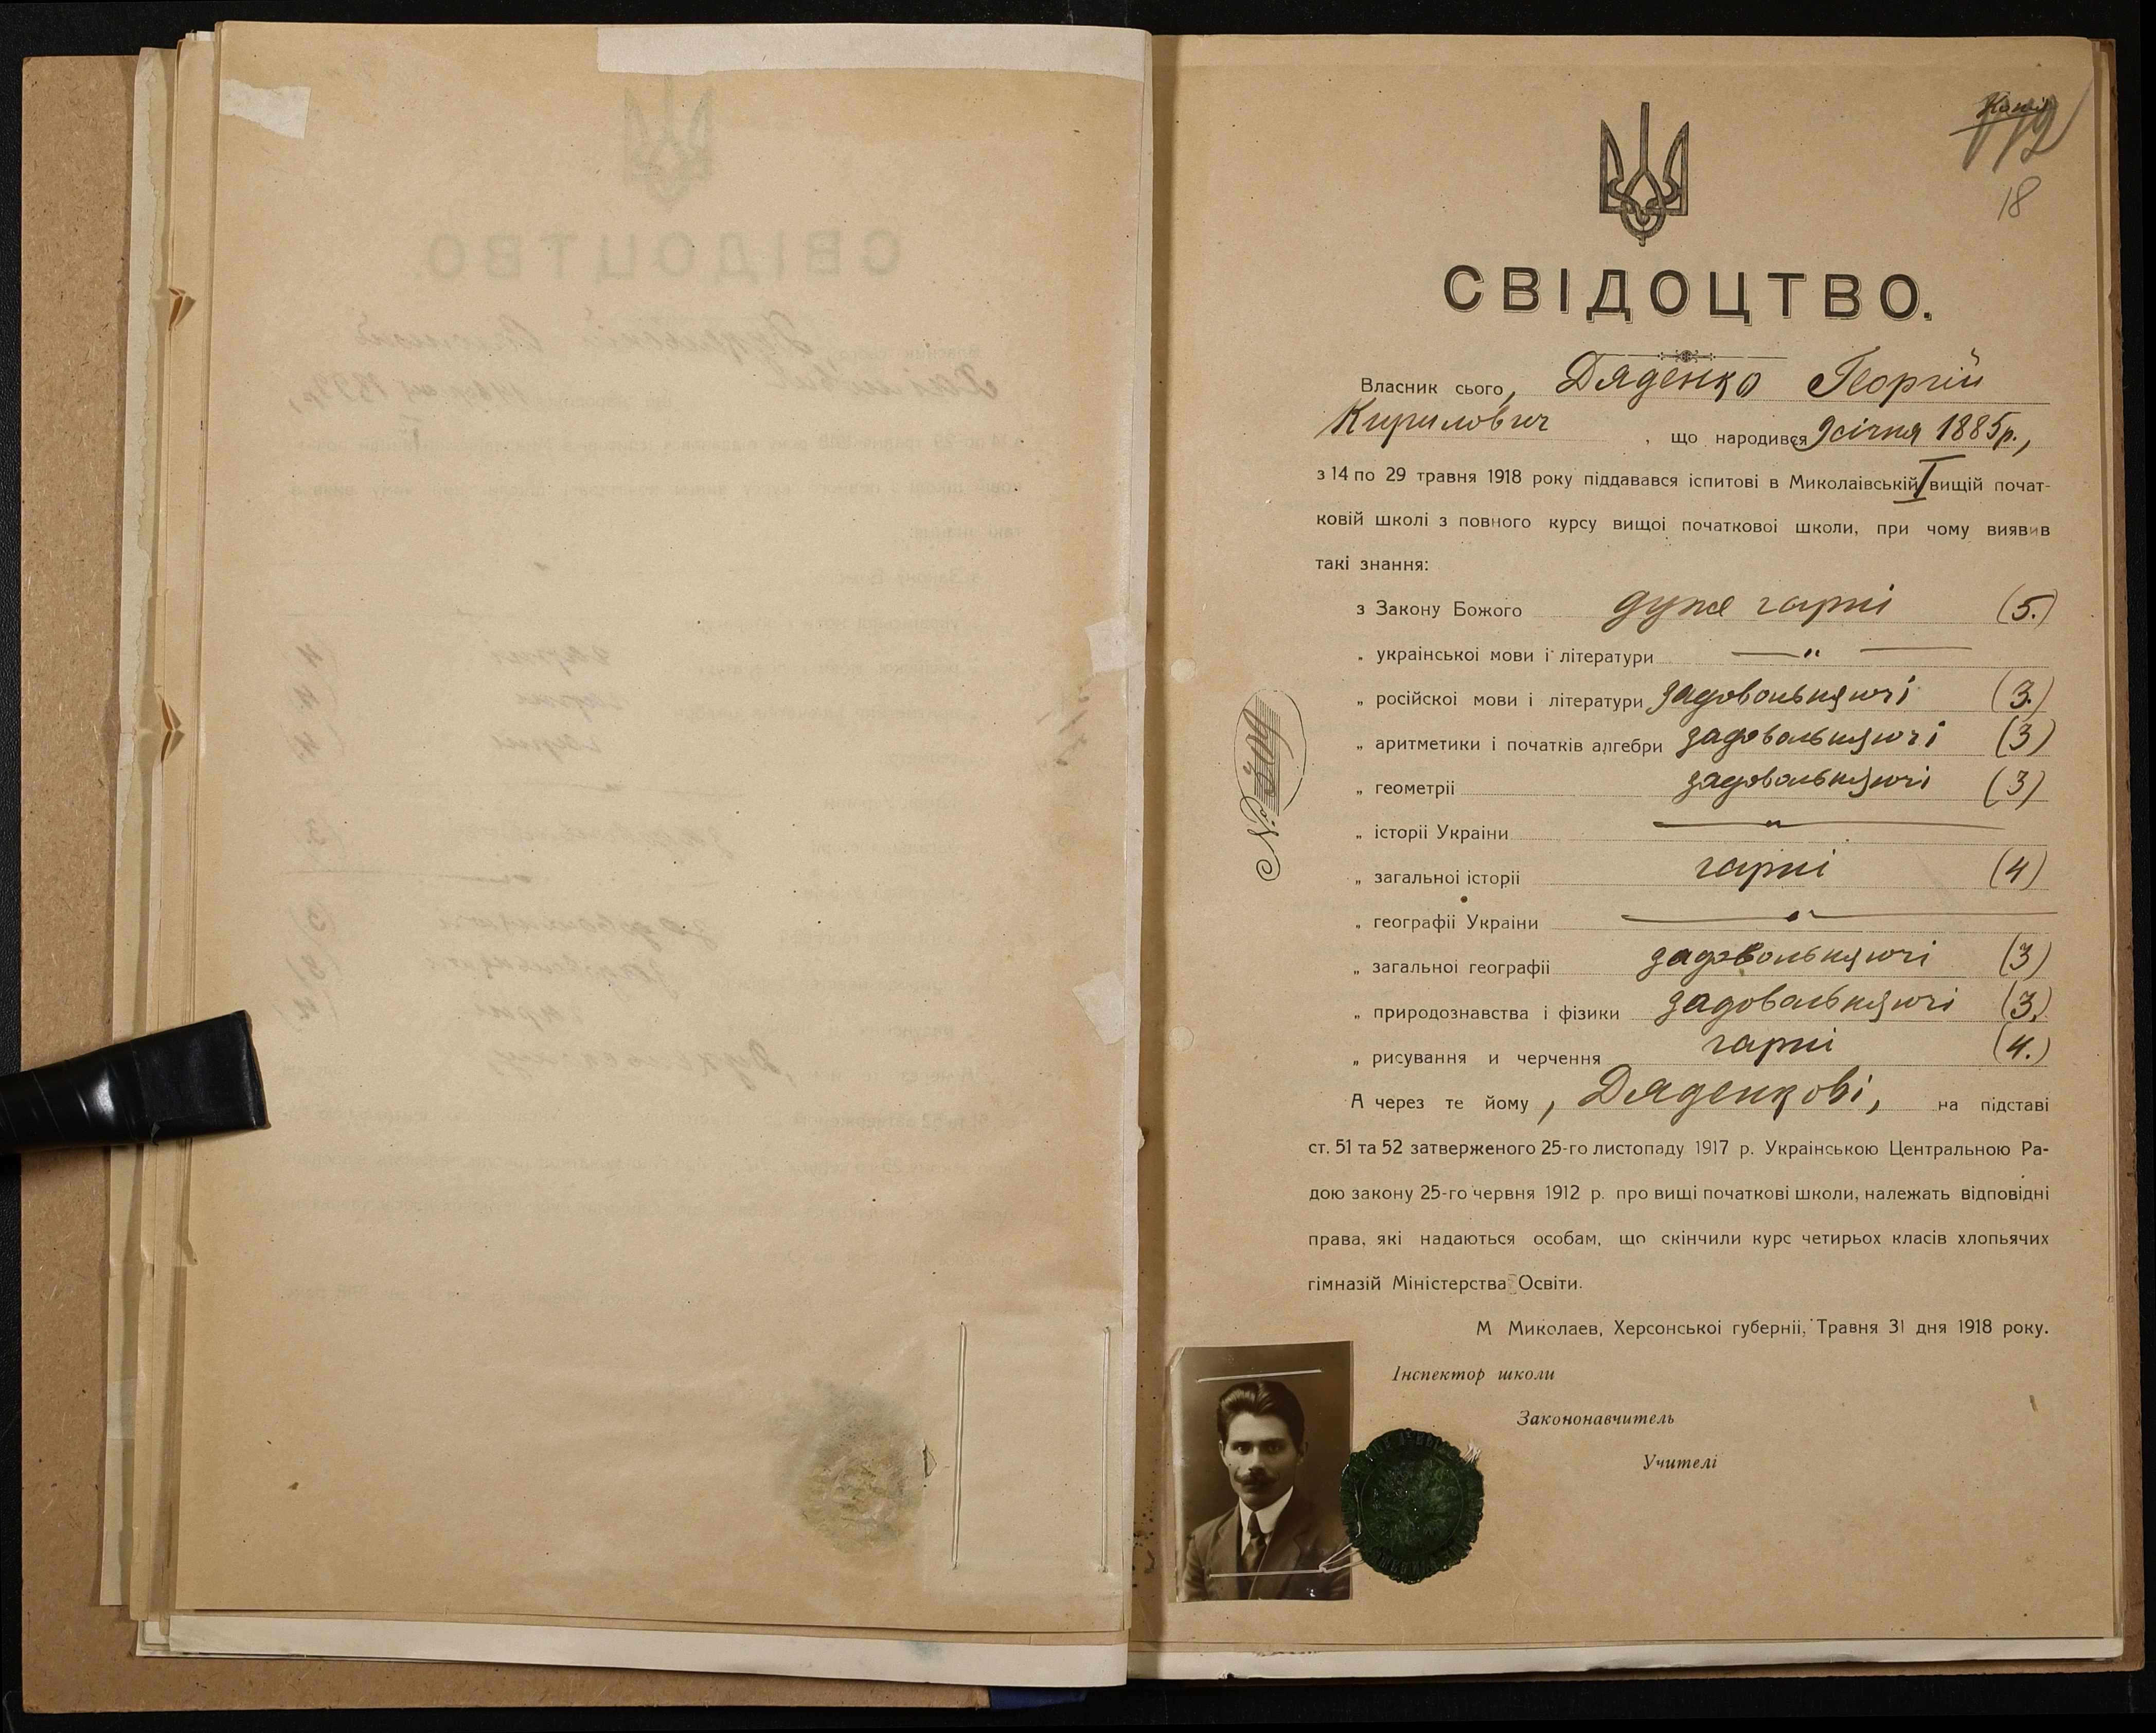 18
СВІДОЦТВО.
Власник сього, Дяденко Георгій
Кирилович, що народився 9 січня 1885 р.,
з 14 по 29 травня 1918 року піддавався іспитові в Миколаівській I вищій почат-
ковій школі з повного курсу вищоі початковоі школи, при чому виявив
такі знання:
з Закону Божого дуже гарні (5.)
„ украінськоі мови і літератури — „ —
„ російскоі мови і літератури задовольняючі (3.)
„ аритметики і початків алгебри задовольняючі (3)
„ геометріі задовольняючі (3)
„ історіі Украіни — „ —
„ загальноі історіі гарні (4)
„ географіі Украіни — „ —
„ загальноі географіі задовольняючі (3)
„ природознавства і фізики задовольняючі (3.)
„ рисування и черчення гарні (4.)
А через те йому, Дяденкові, на підставі
ст. 51 та 52 затверженого 25-го листопаду 1917 р. Украінською Центральною Ра-
дою закону 25-го червня 1912 р. про вищі початкові школи, належать відповідні
права, які надаються особам, що скінчили курс четирьох класів хлопьячих
гімназій Міністерства Освіти.
М Миколаев, Херсонськоі губерніі, Травня 31 дня 1918 року.
Інспектор школи
Закононавчитель
Учителі
№ 309